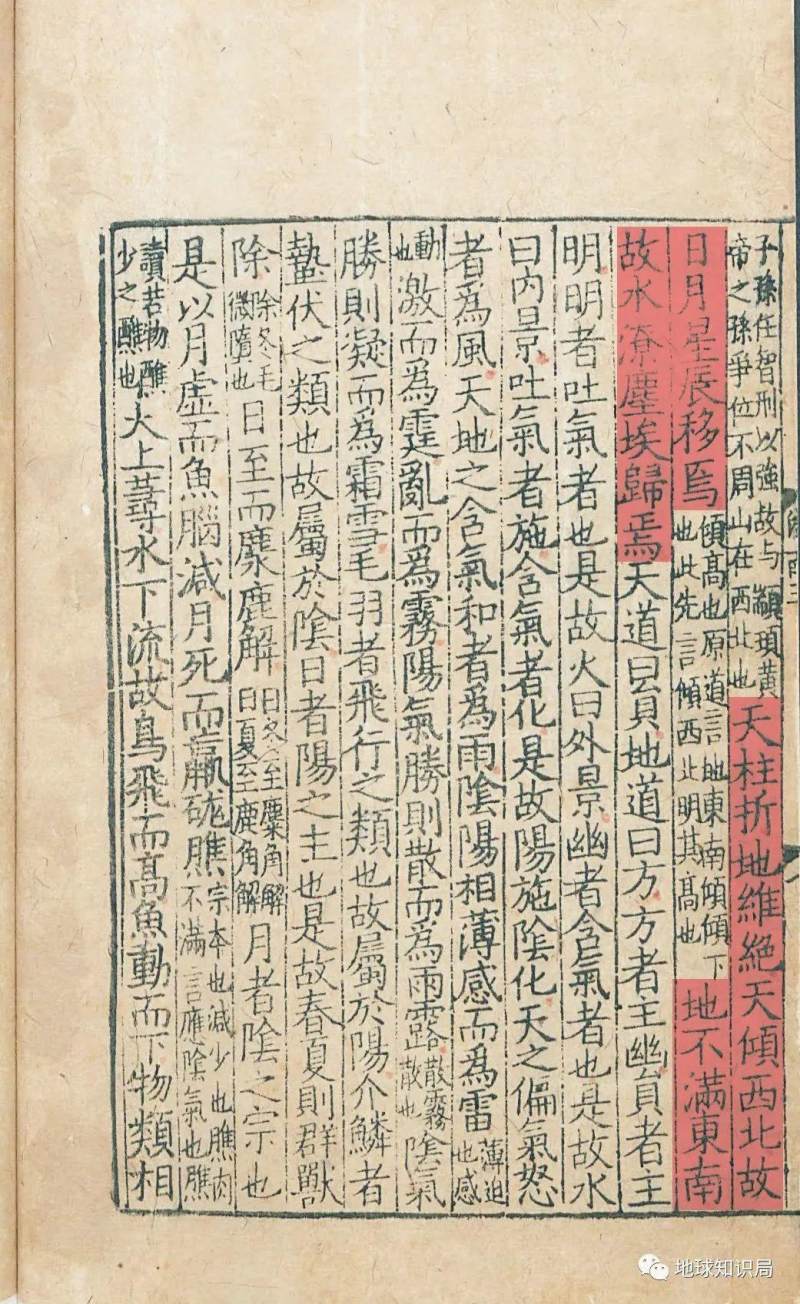 子孫任智刑以強故与顓頊黃帝之孫爭位不周山在西北也天柱折地維絕天傾西北故
日月星辰移焉傾髙也原道言地東南傾傾下也此先言傾西北明其髙也地不滿東南
故水潦塵埃歸焉天道曰員地道曰方方者主幽員者主
明明者吐氣者也是故火曰外景幽者含氣者也是故水
曰內景吐氣者施含氣者化是故陽施陰化天之偏氣怒
者為風天地之含氣和者為雨陰陽相薄感而為雷薄迫也感
動也激而為霆亂而為霧陽氣勝則散而為雨露散霧散也陰氣
勝則凝而為霜雪毛羽者飛行之類也故屬於陽介鱗者
蟄伏之類也故屬於陰日者陽之主也是故春夏則群獸
除除冬毛微墮也日至而麋鹿解日冬至麋角解日夏至鹿角解月者陰之宗也
是以月虛而魚腦減月死而蠃硥膲宗本也減少也膲肉不滿言應陰氣也膲
讀若物醮少之醮也火上蕁水下流故鳥飛而髙魚動而下物類相
地球知识局